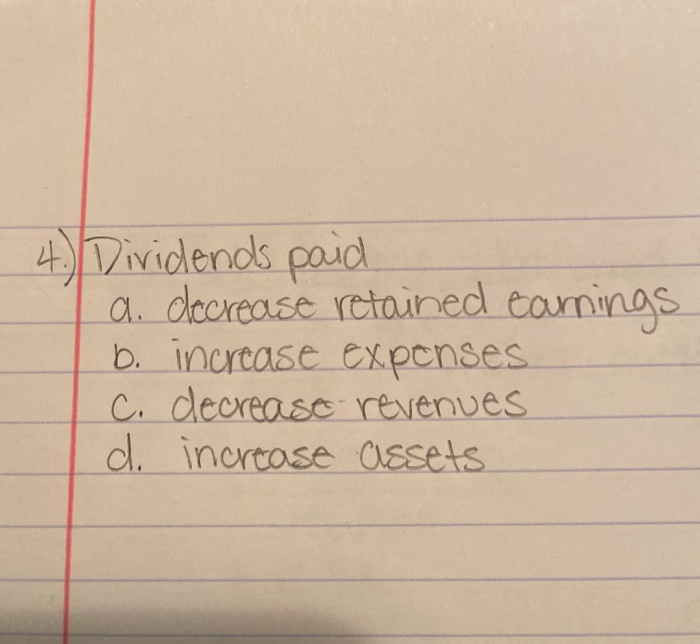 4.) Dividends paid
a. decrease retained earnings
b. increase expenses
c. decrease revenues
d. increase assets